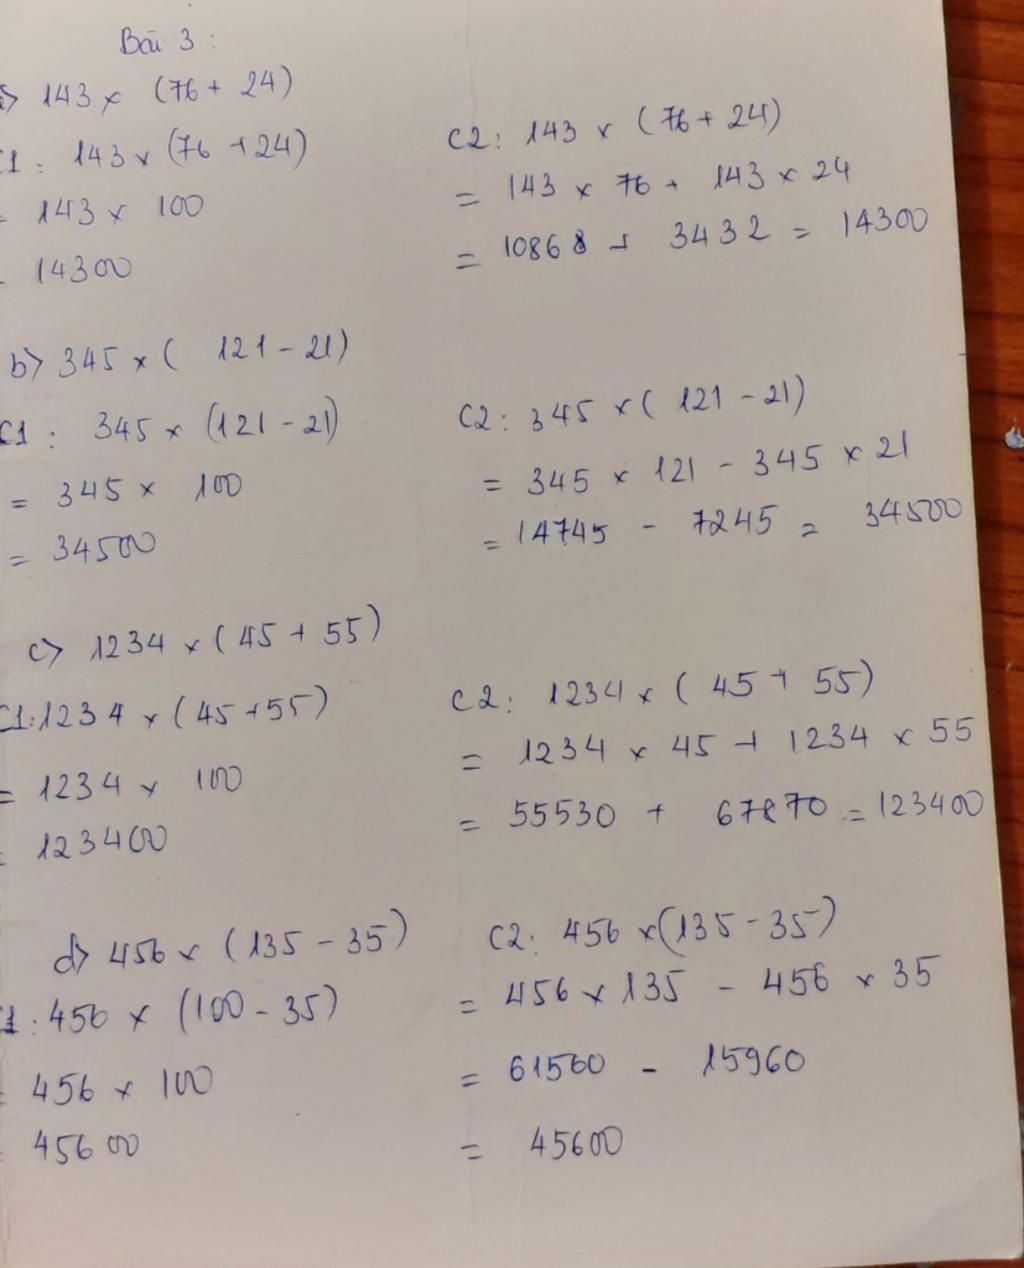 Bài 3 :
a> 143 x (76 + 24)
C1 : 143 x (76 + 24)
= 143 x 100
= 14300
C2 : 143 x (76 + 24)
= 143 x 76 + 143 x 24
= 10868 + 3432 = 14300
b> 345 x ( 121 - 21)
C1 : 345 x (121 - 21)
= 345 x 100
= 34500
C2 : 345 x ( 121 - 21)
= 345 x 121 - 345 x 21
= 14745 - 7245 = 34500
c> 1234 x ( 45 + 55)
C1 : 1234 x ( 45 + 55)
= 1234 x 100
= 123400
C2 : 1234 x ( 45 + 55)
= 1234 x 45 + 1234 x 55
= 55530 + 67870 = 123400
d> 456 x (135 - 35)
C1 : 456 x (100 - 35)
= 456 x 100
= 45600
C2 : 456 x (135 - 35)
= 456 x 135 - 456 x 35
= 61560 - 15960
= 45600